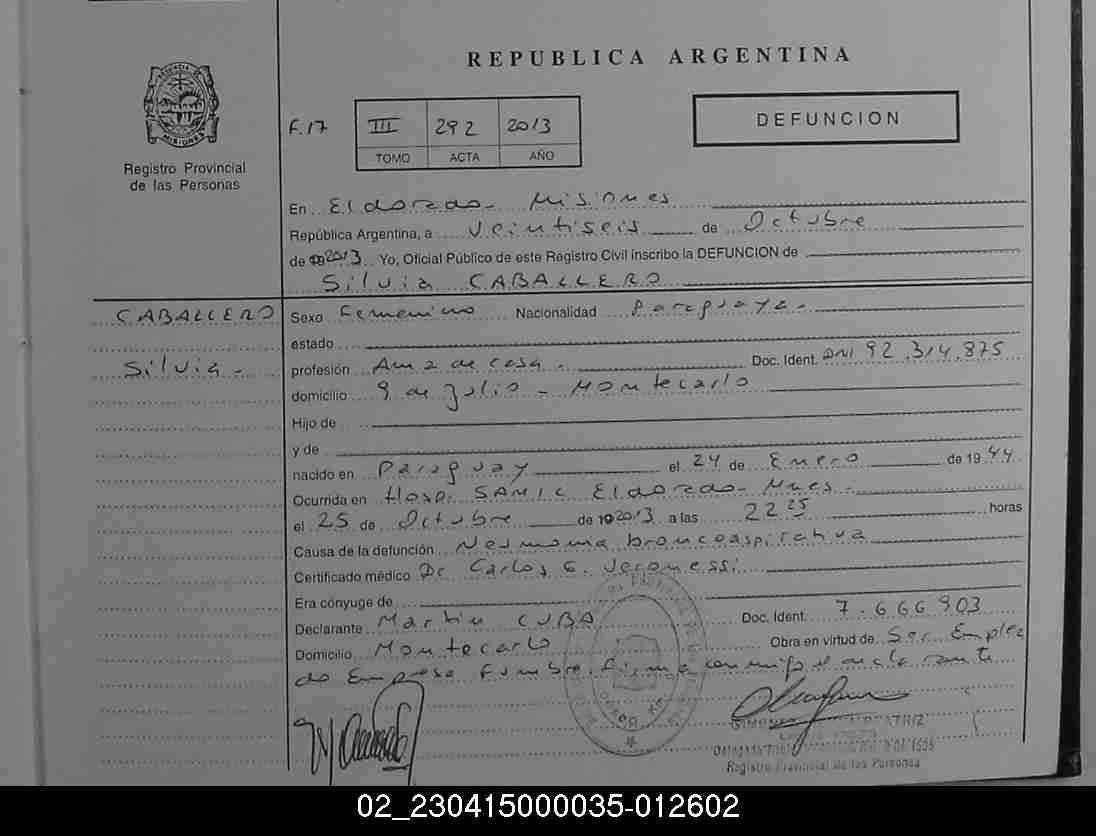 REPUBLICA ARGENTINA
PROVINCIA DE MISIONES
Registro Provincial
de las Personas
F.17 III 292 2013
TOMO ACTA AÑO
DEFUNCION
En Eldorado - Misiones
República Argentina, a veintiseis de Octubre
de 2013 Yo, Oficial Público de este Registro Civil inscribo la DEFUNCION de
Silvia CABALLERO
CABALLERO
Silvia -
Sexo Femenino Nacionalidad Paraguaya -
estado
profesión Ama de casa - Doc. Ident. DNI 92.314.875
domicilio 9 de Julio - Montecarlo
Hijo de
y de
nacido en Paraguay el 24 de Enero de 1944
Ocurrida en Hosp. SAMIC Eldorado - Mnes -
el 25 de Octubre de 2013 a las 22 25 horas
Causa de la defunción Neumonia broncoaspirativa
Certificado médico Dr Carlos G.
Era cónyuge de
Declarante Martin CUBA Doc. Ident. 7.666.903
Domicilio Montecarlo Obra en virtud de Ser Emplea
do Empresa Funebre firma conmigo el declarante
Registro Provincial de las Personas
02_230415000035-012602